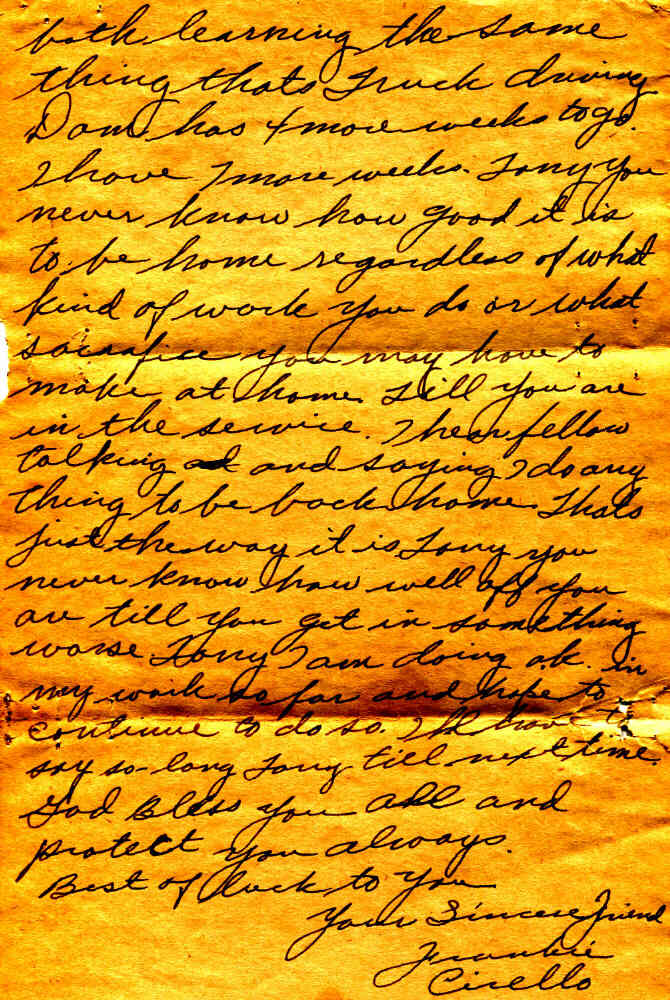 both learning the same
thing thats Truck driving
Dom has 4 more weeks to go.
I have 7 more weeks. Tony you
never know how good it is
to be home regardless of what
kind of work you do or what
sacrafice you may have to
make at home. Till you are
in the service. I hear fellow
talking and saying I do any
thing to be back home. Thats
just the way it is Tony you
never know how well off you
ar till you get in something
worse. Tony I am doing ok. in
my work so far and hope to
continue to do so. I'll have to
say so-long Tony till next time.
God Bless you all and
protect you always.
Best of luck to you
Your Sincere friend
Frankie
Cirello